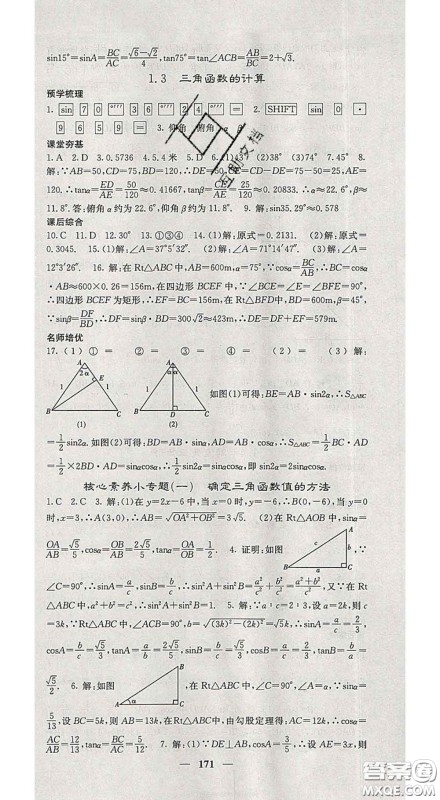 sin15°=sinA=BC/AC=(√6-√2)/4,tan75°=tan∠ACB=AB/BC=2+√3.
1.3 三角函数的计算
预学梳理
1. sin 7 0 °′″ 3 6 °′″ 2 4 °′″ = 2. SHIFT sin 0 ·
9 6 5 9 = 3. 仰角 俯角 α β
课堂夯基
1. A 2. D 3. 0.5736 4. 5.4米 5. D 6. (1)43° (2)38° (3)74° 7. 45° 8.
解:∵AB=50,CD=75,BD=120,∴BE=AB=50.∴DE=CD-CE=75-50=25,AE=
120.∴tanα=ED/AE=50/120≈0.41667,tanβ=ED/AE=25/120≈0.20833.∴α≈22.6°,β≈
11.8°.答:俯角α约为22.6°,仰角β约为11.8°. 9. 解:sin35.29°≈0.578
课后综合
10. C 11. D 12.30° 13. ①③④ 14. (1)解:原式=0.2131. (2)解:原式=
0.3045. 15. (1)解:∠A=37°5′32″. (2)解:∠A=71°14′47″. (3)解:∠A=
12°3′26″. 16. 解:在Rt△ABC中,AB=600m,α=75°,∵cosα=BC/AB,∴BC=
AB·cosα≈600×0.26=156m,在四边形BCEF中∵BC⊥AC,DE⊥AC,DF⊥BF,
∴四边形BCEF为矩形,∴EF=BC=156m,在Rt△BFD中,BD=600m,β=45°,
∵sinβ=DF/BD,∴DF=sinβ·BD=300√2≈423m,∴DE=DF+EF=579m.
名师培优
17. (1) ① = ② = ③ = ④ = (2) = (3) 解:
A E 2α 1 1 B C (1)
A α α 1 1 B D C (2)
如图(1)可得:BE=AB·sin2α,∴S△ABC
=1/2sin2α.如图(2)可得:BD=AB·sinα,AD=AB·cosα,∴S△ABC=1/2BC·AD
=1/2×2BD·AD=sinαcosα.∴1/2sin2α=sinαcosα,即sin2α=2sinαcosα.
核心素养小专题(一) 确定三角函数值的方法
1. C 2. C 3. 解:(1)在y=2x-6中,当x=0时,y=-6.∴B(0,-6),当y=0
时,x=3,∴A(3,0).∴AB=√(OA²+OB²)=3√5. (2)在Rt△AOB中,sinα=
OA/AB=√5/5,cosα=OB/AB=2√5/5,tanα=OA/OB=1/2. 4. 证明:如图 A b C a B c ,∵
∠C=90°,∴sinA=a/c,sinB=b/c,∴sin²A+sin²B=a²/c²+b²/c²=(a²+b²)/c²,又∵在Rt
△ABC中,a²+b²=c²,∴sin²A+sin²B=1. 5. 解:∵a:c=2:3,设a=2k,则c
=3k.∵在Rt△ABC中,∠ACB=90°,∴b=√((3k)²-(2k)²)=√5k,∴sinA=a/c=2/3,
cosA=b/c=√5/3,tanA=a/b=2√5/5,sinB=b/c=√5/3,cosB=a/c=2/3,tanB=b/a=
√5/2. 6. 解:如图 B A C ,在Rt△ABC中,∠C=90°,∠A=α,∵sinα=
5/13,设BC=5k,则AB=13k,在Rt△ABC中,由勾股定理得:AC=12k,∴cosα=
AC/AB=12/13,tanα=BC/AC=5/12. 7. 解:(1)∵DE⊥AB,cosA=3/5,∴设AE=3x,则
171
答案圈
MXQE.COM